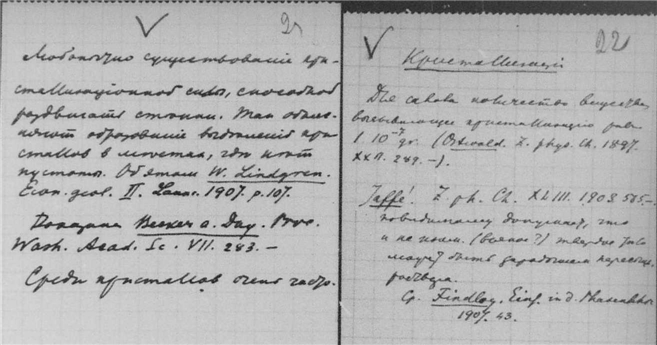 21
Любопытно существованіе кри-
сталлизаціонной силы, способной
раздвигать стѣнки. Так объяс-
няют образованіе выдѣленій кри-
сталлов в мѣстах, гдѣ нѣт
пустоты. Об этом W. Lindgren.
Econ. geol. II. Lanc. 1907. p. 107.
Показана Becker a. Day. Proc.
Wash. Acad. Sc. VII. 283.—
Среди кристаллов очень часто.
22
Кристаллизація
количество вещества,
вызывающее кристаллизацію
1. 10⁻⁷ gr. (Ostwald. Z. phys. Ch. 1897.
XXII. 289.—).
Jaffé. Z. ph. Ch. XLIII. 1903. 565.—
повидимому допускает, что
и не изом. (вполне?) твердые тѣла
могут быть зародышем пересыщ.
раствора.
Cp. Findlay. Einf. in d. Phasenlehre
1907. 43.